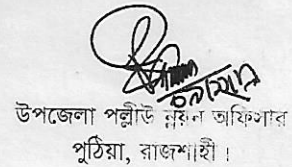 উপজেলা পল্লীউ ন্নয়ন অফিসার
পুঠিয়া, রাজশাহী।